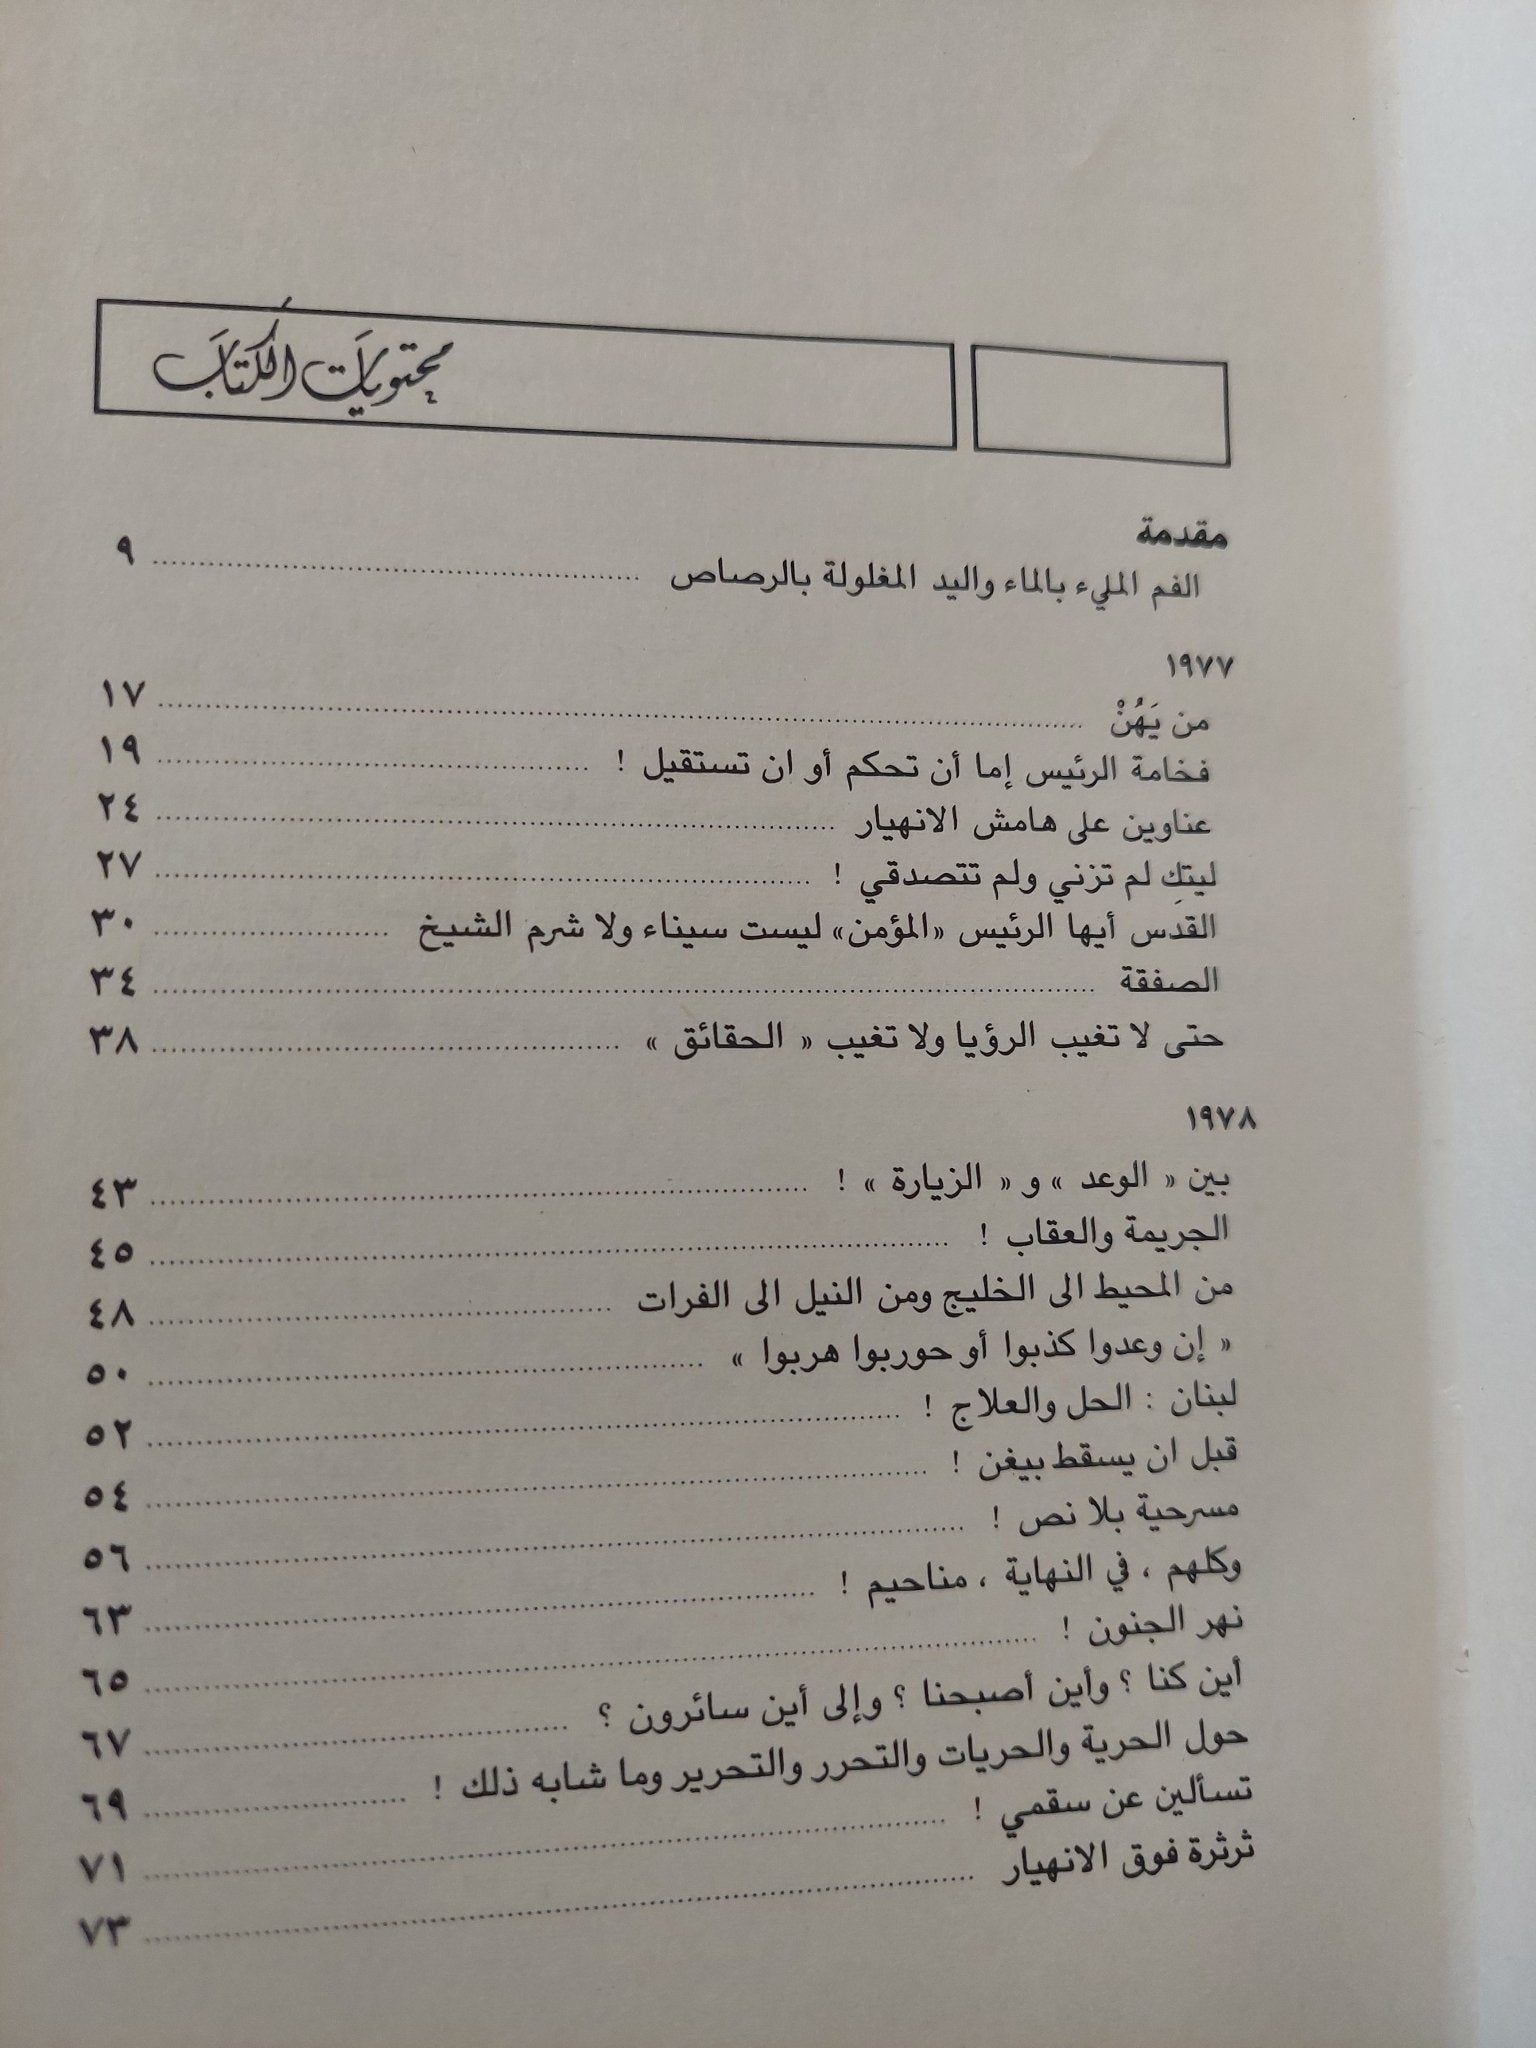 محتويات الكتاب
مقدمة
الفم المليء بالماء واليد المغلولة بالرصاص ........ ٩
١٩٧٧
من يَهُنْ ........ ١٧
فخامة الرئيس إما أن تحكم أو ان تستقيل ! ........ ١٩
عناوين على هامش الانهيار ........ ٢٤
ليتكِ لم تزني ولم تتصدقي ! ........ ٢٧
القدس أيها الرئيس «المؤمن» ليست سيناء ولا شرم الشيخ ........ ٣٠
الصفقة ........ ٣٤
حتى لا تغيب الرؤيا ولا تغيب « الحقائق » ........ ٣٨
١٩٧٨
بين « الوعد » و « الزيارة » ! ........ ٤٣
الجريمة والعقاب ! ........ ٤٥
من المحيط الى الخليج ومن النيل الى الفرات ........ ٤٨
« إن وعدوا كذبوا أو حوربوا هربوا » ........ ٥٠
لبنان : الحل والعلاج ! ........ ٥٢
قبل ان يسقط بيغن ! ........ ٥٤
مسرحية بلا نص ! ........ ٥٦
وكلهم ، في النهاية ، مناحيم ! ........ ٦٣
نهر الجنون ! ........ ٦٥
أين كنا ؟ وأين أصبحنا ؟ وإلى أين سائرون ؟ ........ ٦٧
حول الحرية والحريات والتحرر والتحرير وما شابه ذلك ! ........ ٦٩
تسألين عن سقمي ! ........ ٧١
ثرثرة فوق الانهيار ........ ٧٣